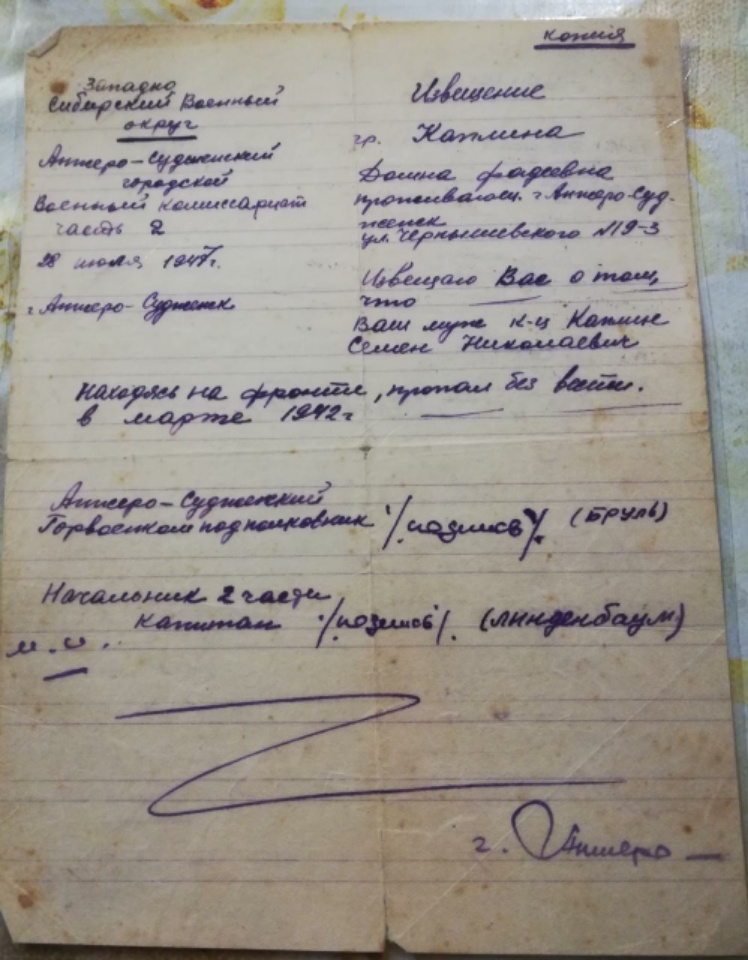 копия
Западно
Сибирский Военный
округ
Анжеро-Судженский
городской
Военный комиссариат
часть 2
28 июля 1947г.
г. Анжеро-Судженск
Извещение
гр.
Домна Фадеевна
проживающ. г. Анжеро-Суд-
женск
ул. Чернышевского №19-3
Извещаю Вас о том,
что
Ваш муж к-ц
Семен Николаевич
Находясь на фронте, пропал без вести.
в марте 1942г
Анжеро-Судженский
Горвоенком подполковник /подпись/. (Бруль)
Начальник 2 части
капитан /подпись/. (Линденбаум)
м.п.
г. Анжеро —